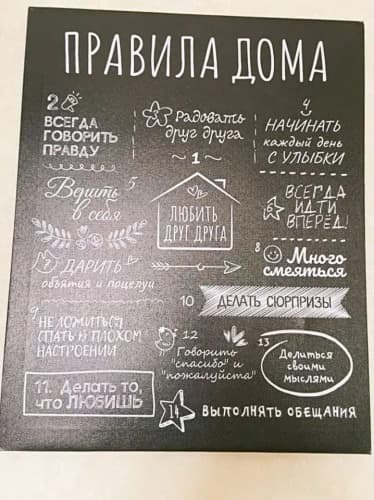 ПРАВИЛА ДОМА
2
ВСЕГДА
ГОВОРИТЬ
ПРАВДУ
3
Радовать
друг друга
4
НАЧИНАТЬ
каждый день
С УЛЫБКИ
5
Верить
в себя
1
ЛЮБИТЬ
ДРУГ ДРУГА
6
ВСЕГДА
ИДТИ
ВПЕРЁД!
7
ДАРИТЬ
объятия и поцелуи
8
Много
смеяться
10
ДЕЛАТЬ СЮРПРИЗЫ
9
НЕ ЛОЖИТЬСЯ
СПАТЬ В ПЛОХОМ
НАСТРОЕНИИ
12
Говорить
"спасибо" и
"пожалуйста"
13
Делиться
своими
мыслями
11. Делать то,
что ЛЮБИШЬ
14
ВЫПОЛНЯТЬ ОБЕЩАНИЯ